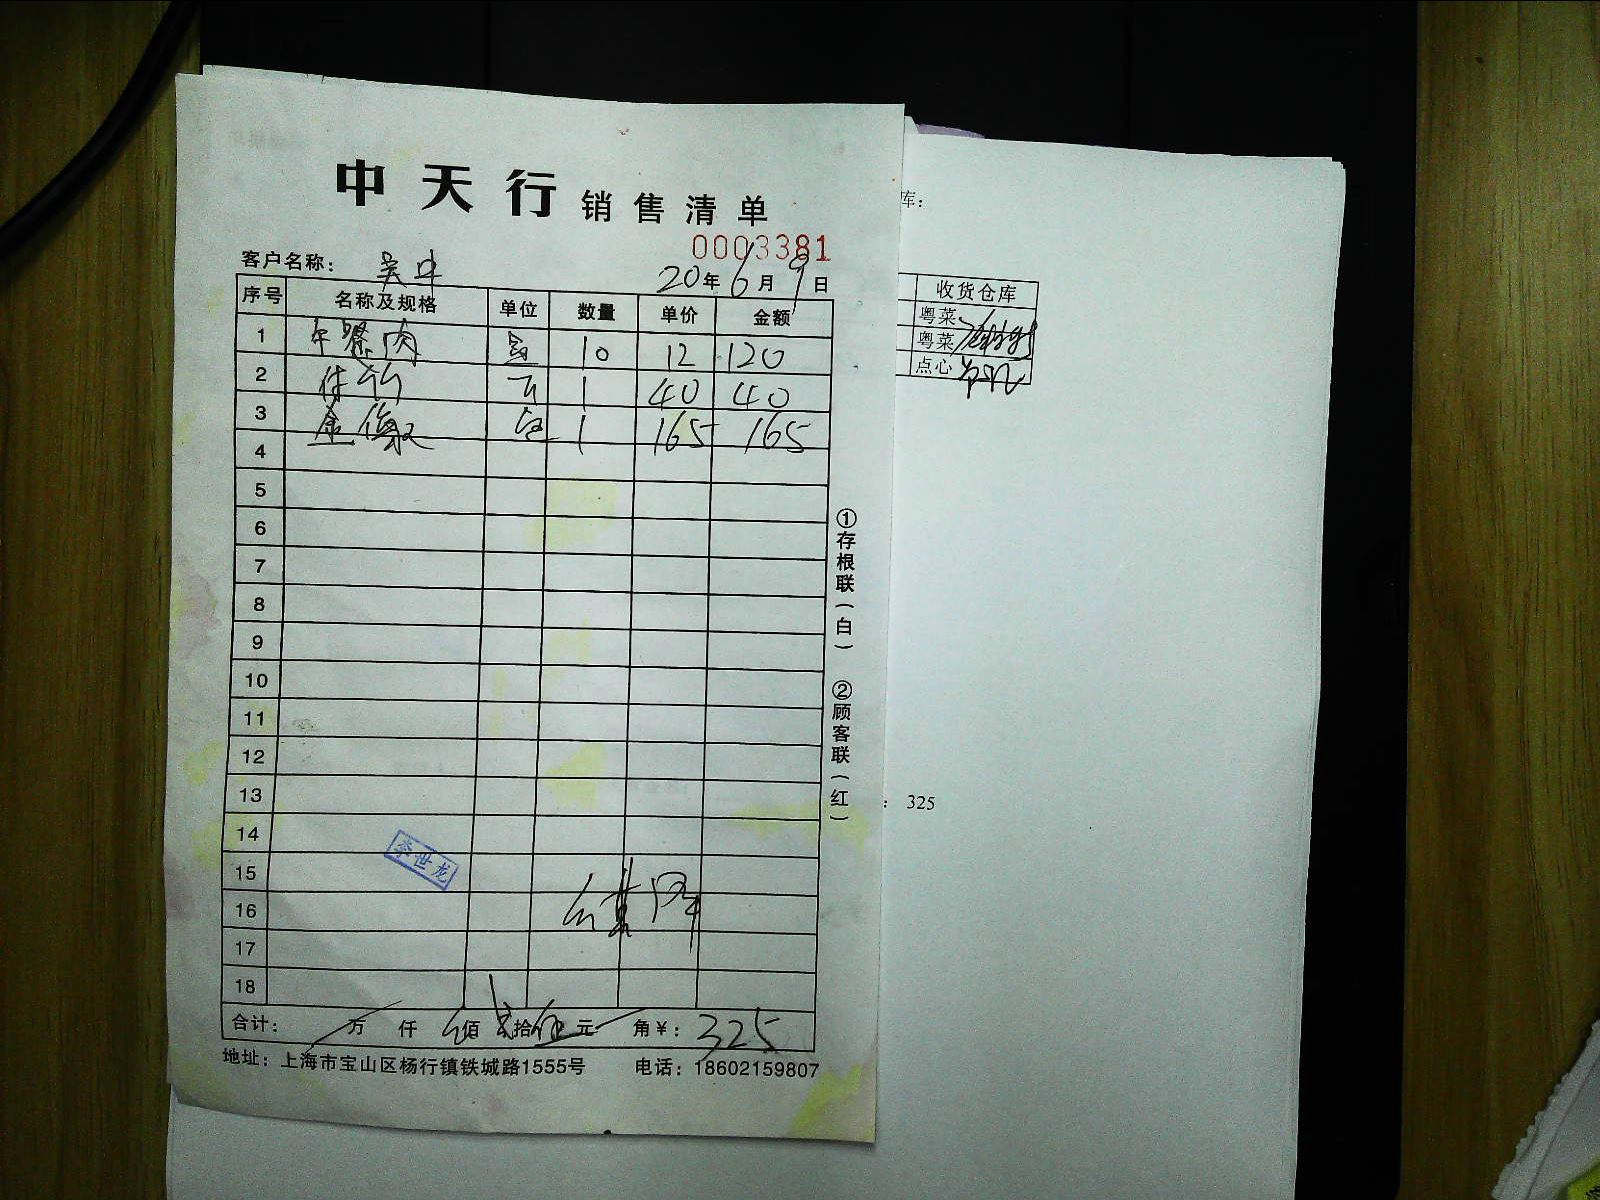 中天行 销售清单
0003381
客户名称： 吴中
20年6月9日
序号 名称及规格 单位 数量 单价 金额
1 午餐肉 10 12 120
2 1 40 40
3 1 165 165
4
5
6
7
8
9
10
11
12
13
14
15
16
17
18
李世龙
合计： 万 仟 佰 拾 伍 元 角 ¥： 325
地址：上海市宝山区杨行镇铁城路1555号 电话：18602159807
①存根联（白） ②顾客联（红）
库：
收货仓库
粤菜
粤菜
点心
： 325